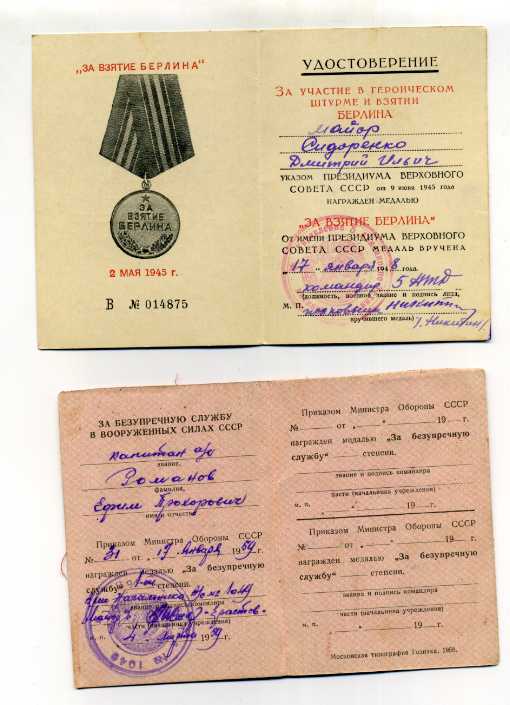 „ЗА ВЗЯТИЕ БЕРЛИНА“
ЗА
ВЗЯТИЕ
БЕРЛИНА
2 МАЯ 1945 г.
В № 014875
УДОСТОВЕРЕНИЕ
ЗА УЧАСТИЕ В ГЕРОИЧЕСКОМ
ШТУРМЕ И ВЗЯТИИ
БЕРЛИНА
майор
Сидоренко
Дмитрий Ильич
УКАЗОМ ПРЕЗИДИУМА ВЕРХОВНОГО
СОВЕТА СССР от 9 июня 1945 года
НАГРАЖДЕН МЕДАЛЬЮ
„ЗА ВЗЯТИЕ БЕРЛИНА“
От имени ПРЕЗИДИУМА ВЕРХОВНОГО
СОВЕТА СССР МЕДАЛЬ ВРУЧЕНА
„17“ января 1948 года.
командир 5
(должность, военное звание и подпись лица,
М. П. полковник
вручившего медаль)
ЗА БЕЗУПРЕЧНУЮ СЛУЖБУ
В ВООРУЖЕННЫХ СИЛАХ СССР
капитан а/с
звание,
Романов
фамилия,
Ефим Прохорович
имя и отчество
Приказом Министра Обороны СССР
№ 31 от 19 января 1959 г.
награжден медалью „За безупречную
службу“ степени.
звание и подпись командира
Майор
части (начальника учреждения)
м. п. 4 марта 1959 г.
Приказом Министра Обороны СССР
№ от „ “ 19 г.
награжден медалью „За безупречную
службу“ степени.
звание и подпись командира
части (начальника учреждения)
м. п. „ “ 19 г.
Приказом Министра Обороны СССР
№ от „ “ 19 г.
награжден медалью „За безупречную
службу“ степени.
звание и подпись командира
части (начальника учреждения)
м. п. „ “ 19 г.
Московская типография Гознака. 1958.